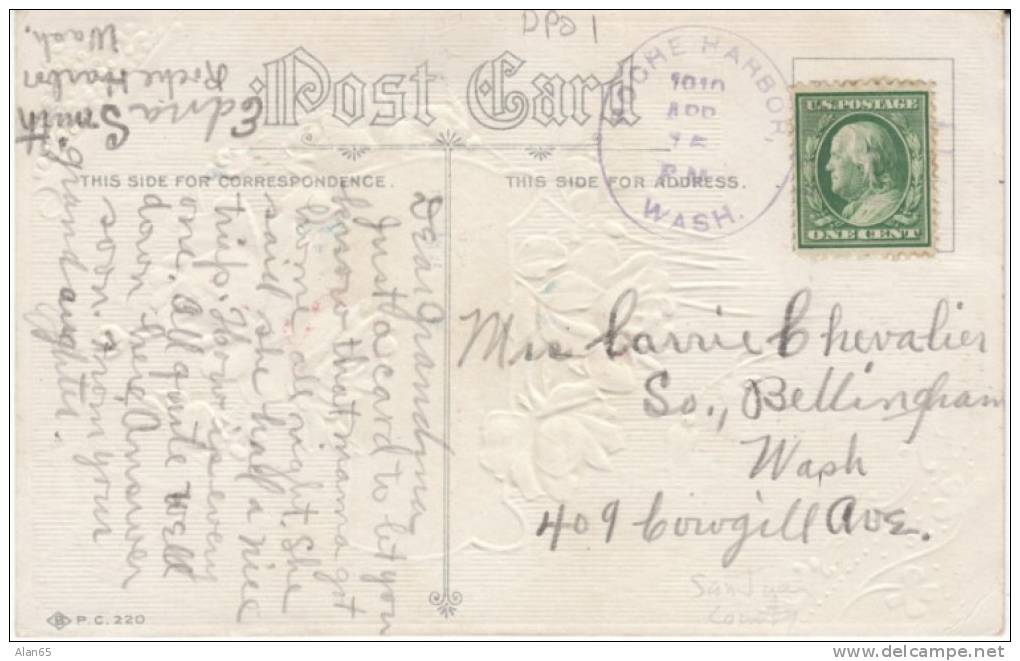 DPO 1
Post Card
THIS SIDE FOR CORRESPONDENCE.
THIS SIDE FOR ADDRESS.
ROCHE HARBOR,
1910
APR
P.M.
WASH.
U.S. POSTAGE
ONE CENT
Mrs Carrie Chevalier
So., Bellingham
Wash
409 Cowgill Ave.
San Juan
County
Dear Grandma
Just a card to let you
know that mama got
home all right. She
said she had a nice
trip. How is every
one. All quite well
down here, Answer
soon. From your
granddaughter.
Edna
Smith
Roche Harbor
Wash.
P.C. 220
Alan65